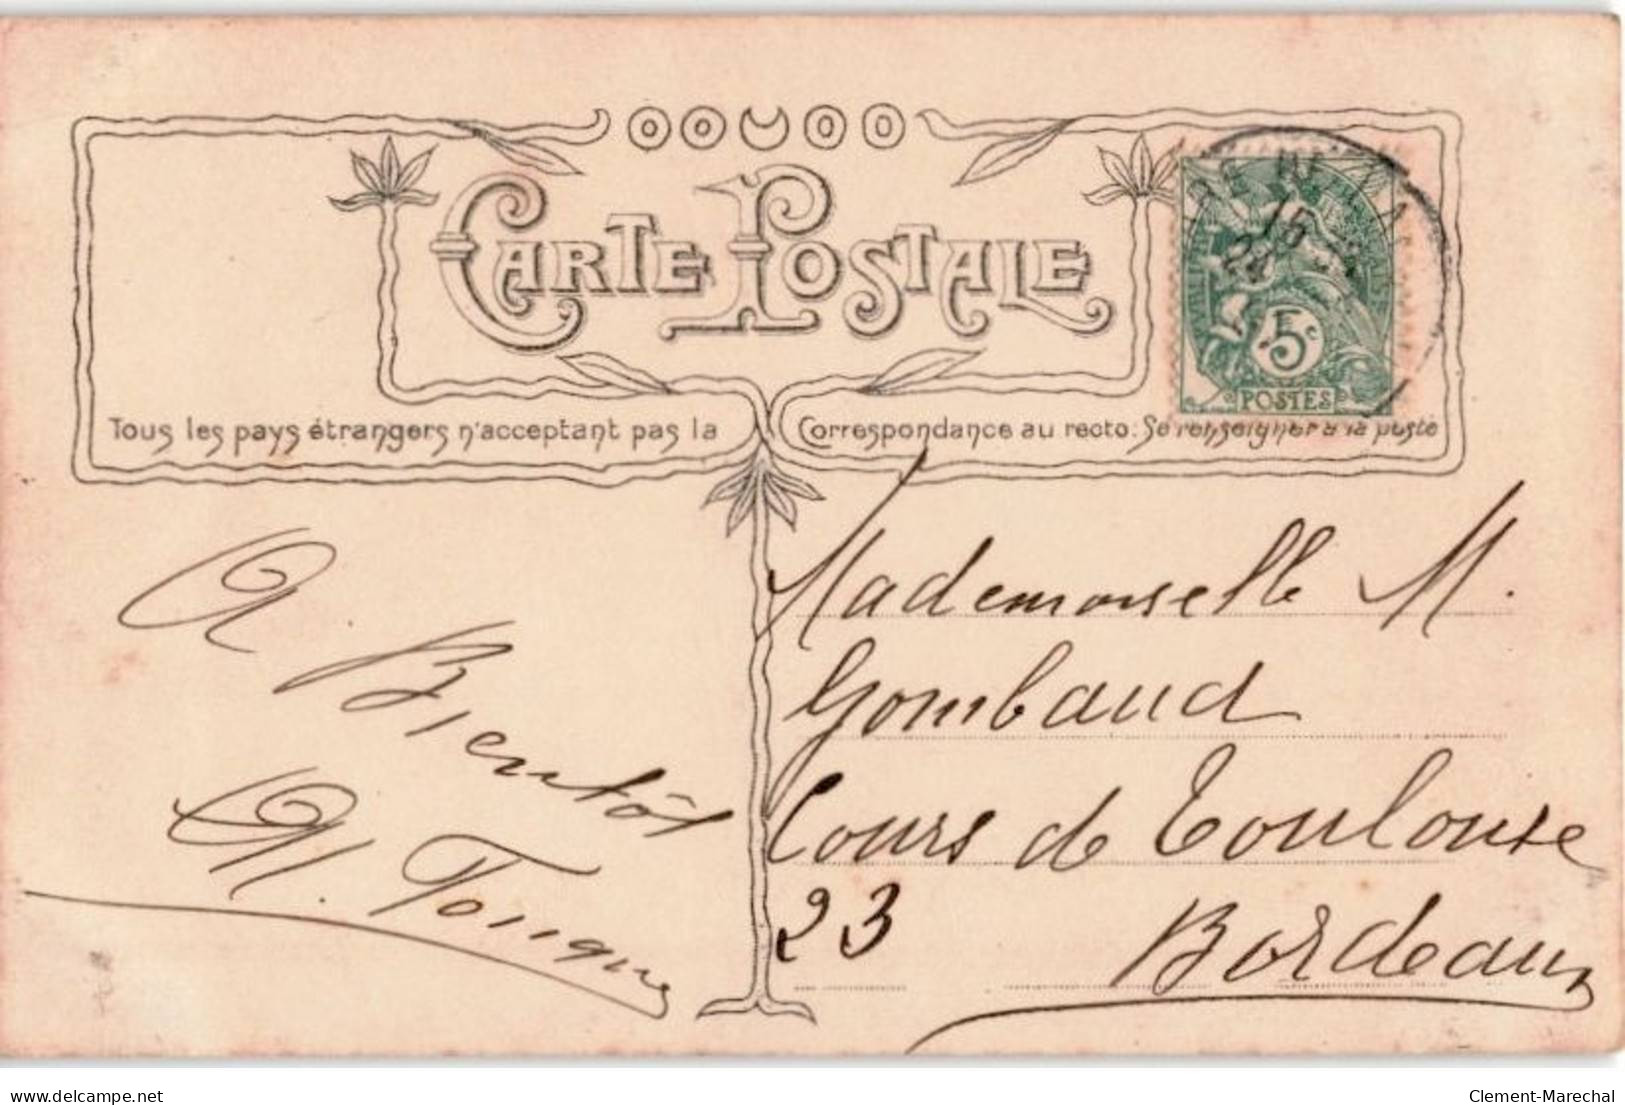 CARTE POSTALE
Tous les pays étrangers n'acceptant pas la Correspondance au recto. Se renseigner à la poste
5c
POSTES
A Bientôt
Mademoiselle M.
Gombaud
Cours de Toulouse
23
Bordeaux
delcampe.net
Clement-Marechal